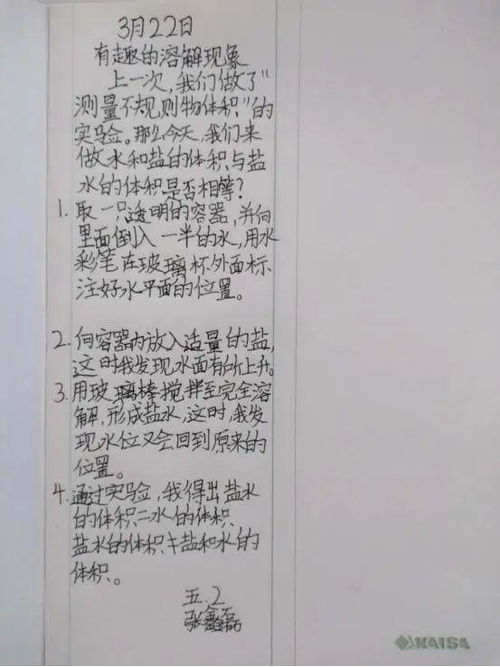 3月22日
有趣的溶解现象
上一次,我们做了"
测量不规则物体积"的
实验。那么今天,我们来
做水和盐的体积与盐
水的体积是否相等?
1. 取一只透明的容器,并向
里面倒入一半的水,用水
彩笔在玻璃杯外面标
注好水平面的位置。
2. 向容器内放入适量的盐,
这时我发现水面有所上升。
3. 用玻璃棒搅拌至完全溶
解,形成盐水,这时,我发
现水位又会回到原来的
位置。
4. 通过实验,我得出盐水
的体积=水的体积
盐水的体积≠盐和水的
体积。
五.2
张鑫磊
KAISA